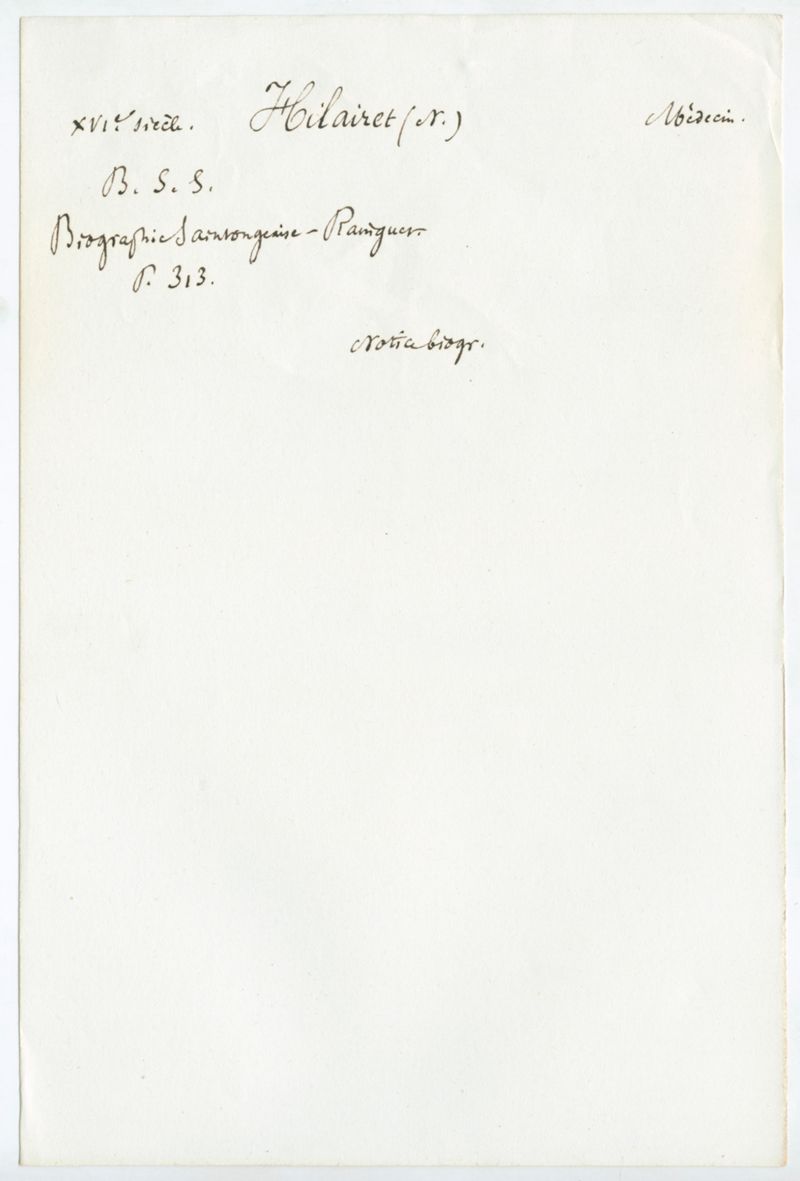 XVI.e siècle. Hilairet (N.) Médecin.
B. S. S.
Biographie Saintongeaise - Rainguet
P. 313.
Notice biogr.